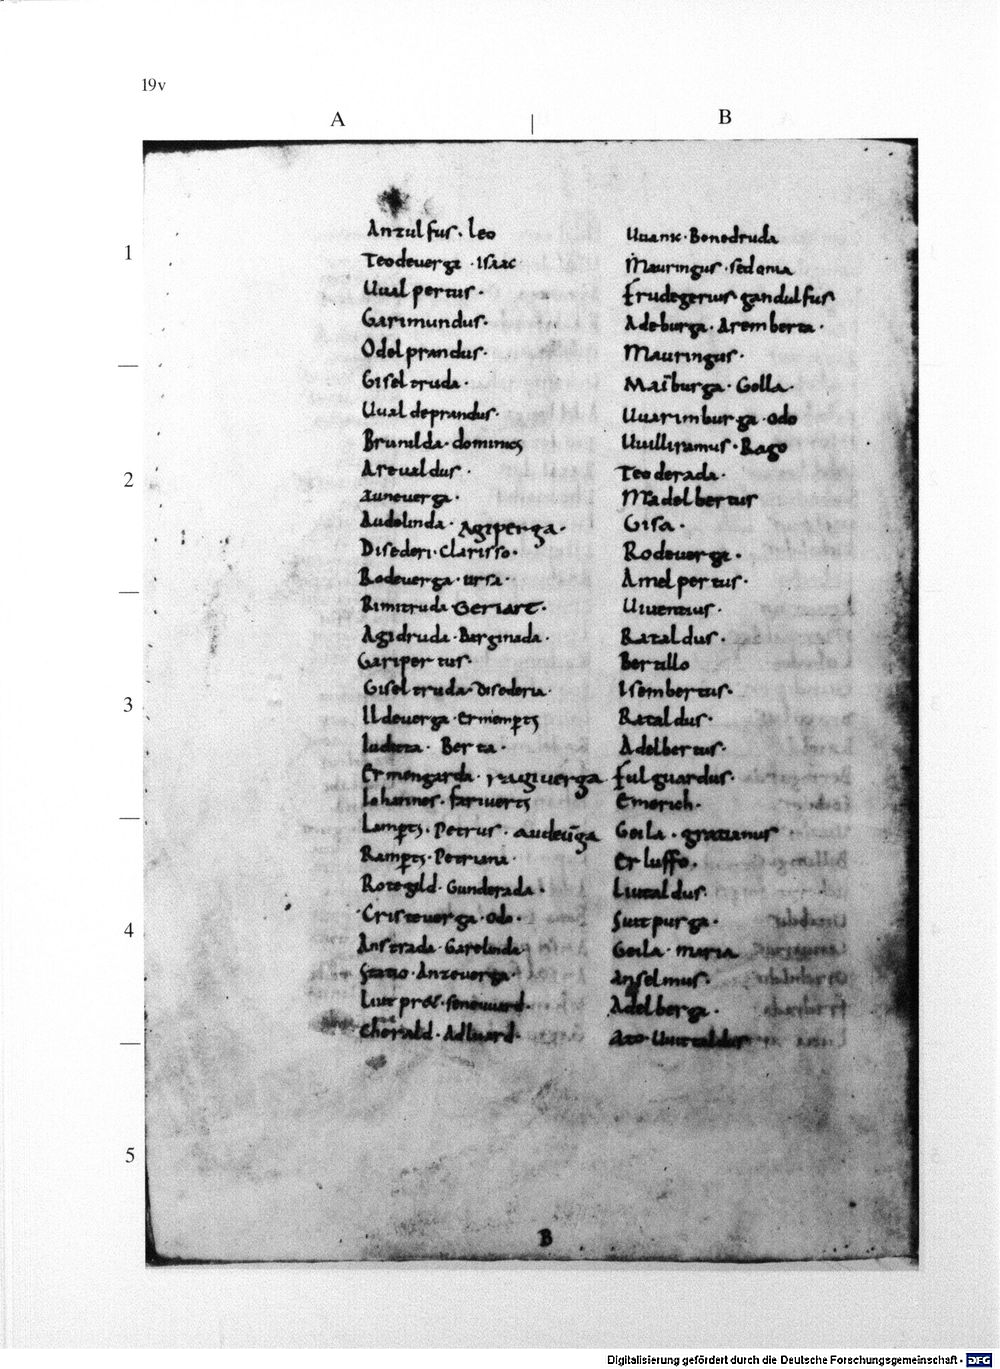 19v
A
B
1
2
3
4
5
Anzulfus. leo
Teodeuerga . Isaac
Uualpertus.
Garimundus.
Odelprandus.
Giseltruda.
Uualdeprandus.
Brunilda. dominicꝫ
Aroualdus.
auneuerga.
Audelinda. Agiperga.
Disederi. Clarisso.
Rodeuerga. ursa.
Rimitruda Geriart.
Agidruda. Barginada.
Garipertus.
Giseltruda. Disederia.
Ildeuerga. Ermemꝑtꝫ
Berta.
Ermengarda. ragiuerga
Iohannes. fariuertꝫ
Lamꝑtꝫ. Petrus. audeūga
Ramꝑtꝫ. Petriana.
Rotegild. Gunderada.
Cristeuerga. Odo.
Anstrada. Garelinda
Statio. Anzeuerga.
Liutpret. seneuuard.
Chorald. Adluard.
Uuanic. Benedruda
Mauringus. sedonia
Frudegerius. gandulfus
Adeburga. Aremberta.
Mauringus.
Maïburga. Golla.
Uuarimburga. Odo
Uuilliramus. Rago
Teoderada.
Madelbertus
Gisa.
Rodeuerga.
Amelpertus.
Uiuentius.
Rataldus.
Bertillo
Isembertus.
Rataldus.
Adelbertus.
Fulguardus.
Emerich.
Geila. gratianus
Erluffo.
Liutaldus.
Suitpurga.
Geila. maria
anselmus.
Adelberga.
Azo. Uuitaldus
B
Digitalisierung gefördert durch die Deutsche Forschungsgemeinschaft - DFG